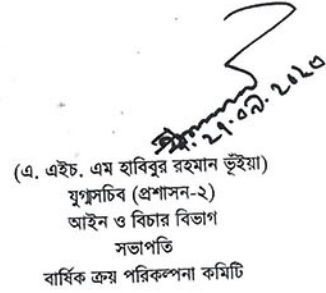 ২১.০৯.২০২৩
(এ. এইচ. এম হাবিবুর রহমান ভূঁইয়া)
যুগ্মসচিব (প্রশাসন-২)
আইন ও বিচার বিভাগ
সভাপতি
বার্ষিক ক্রয় পরিকল্পনা কমিটি